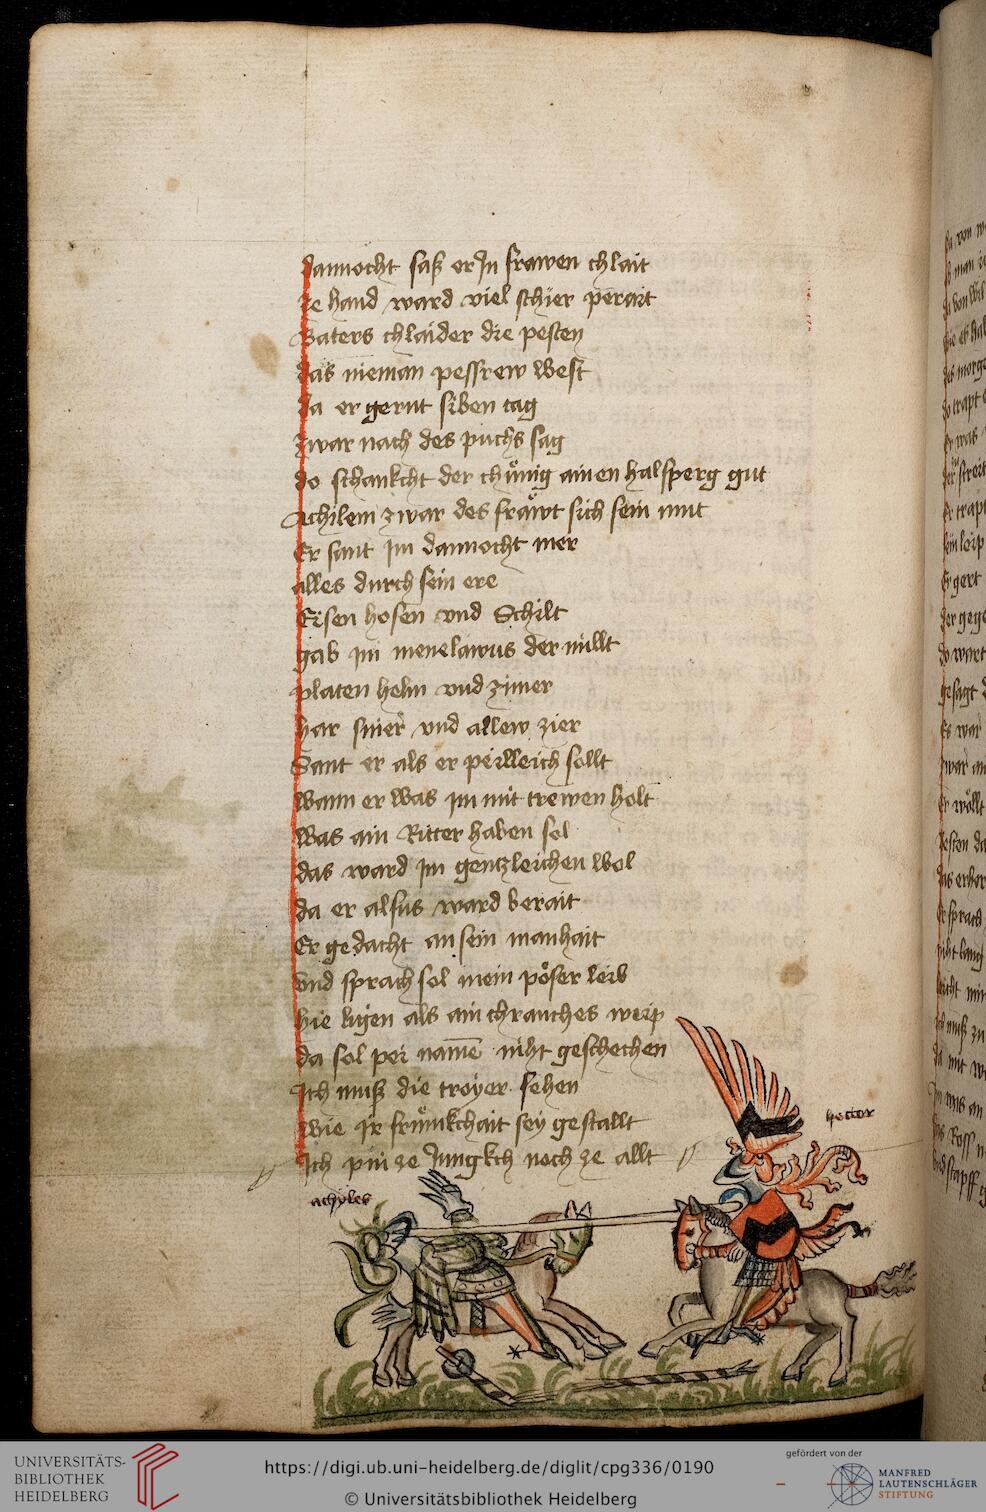 dannocht saß er Jn frawen chlait
ze hand ward viel schier perait
Vaters chlaider die pesten
das nieman pessrew west
da er gernt siben tag
zwar nach des puchs sag
do schankcht der chünig ainen halsperg gut
Achilem zwar des frawt sich sein mut
Er sant im dannocht mer
alles durch sein ere
Eisen hosen vnd Schilt
gab im menelawus der millt
platen helm vnd zimer
har smer vnd allew zier
Sant er als er peilleich sollt
wann er was im mit trewen holt
Was ain Ritter haben sol
das ward im gentzleichen wol
da er alsus ward berait
Er gedacht an sein manhait
vnd sprach sol mein pöser leib
hie ligen als ain chranches weip
da sol pei name niht geschechen
Ich muß die troyer sehen
wie Ir frümkchait sey gestallt
Ich pin ze Jungkch noch ze allt
hector
achyles
UNIVERSITÄTS-
BIBLIOTHEK
HEIDELBERG
https://digi.ub.uni-heidelberg.de/diglit/cpg336/0190
© Universitätsbibliothek Heidelberg
gefördert von der
MANFRED
LAUTENSCHLÄGER
STIFTUNG